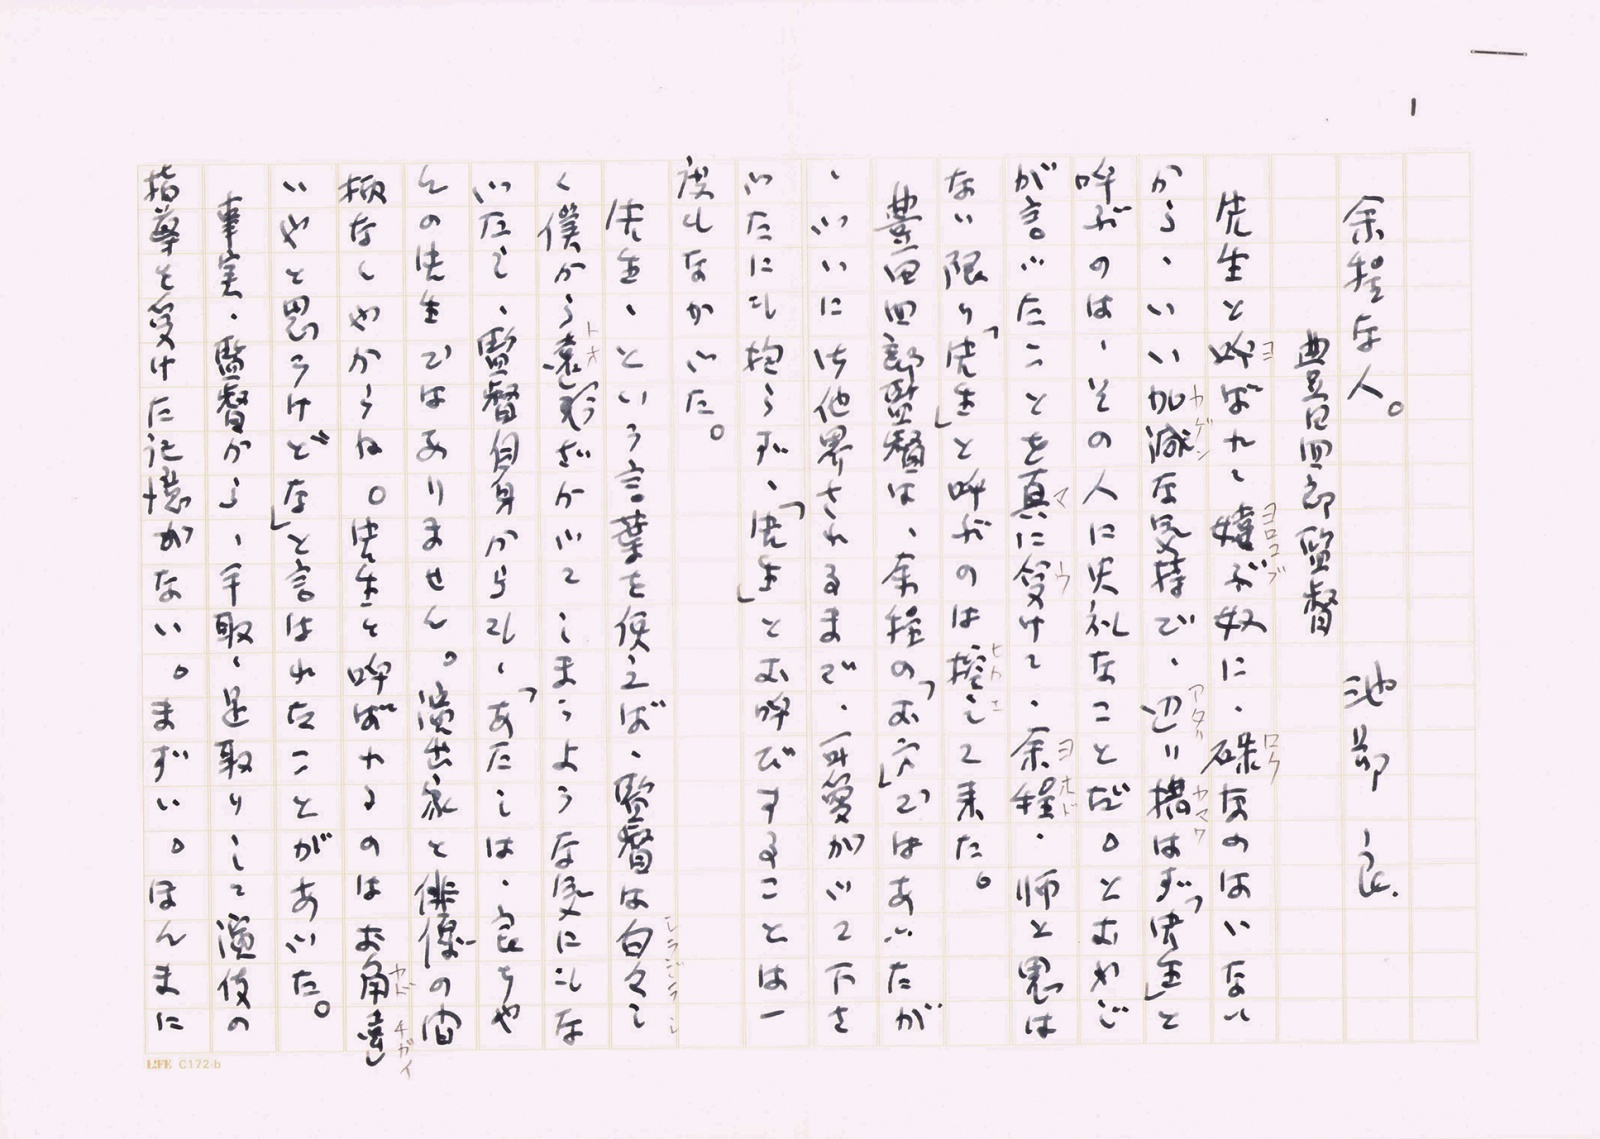 1
余程な人。　池部 良
豊田四郎監督
先生と呼ばれて嬉ぶ奴に、碌なのはいない
ヨ　ヨロコブ　ロク
から、いい加減な気持で、辺り構はず「先生」と
カゲン　アタリ　カマワ
呼ぶのは、その人に失礼なことだ。とおやじ
が言ったことを真に受けて、余程、師と思は
マ　ウ　ヨホド
ない限り「先生」と呼ぶのは控えて来た。
ヒカエ
豊田四郎監督は、余程の「お方」ではあったが
、ついに御他界されるまで、可愛がって下さ
ったにも抱らず、「先生」とお呼びすることは一
度もなかった。
先生、という言葉を使えば、監督は白々し
シラジラシ
く僕から遠ざかってしまうような気にもな
トオ
ったし、監督自身からも、「あたしは、良ちゃ
んの先生ではありません。演出家と俳優の間
柄なんやからね。先生と呼ばれるのはお角違
カド　チガイ
いやと思うけどな」と言はれたことがあった。
事実、監督から、手取、足取りして演技の
指導を受けた記憶がない。まずい。ほんまに
LIFE C172-b